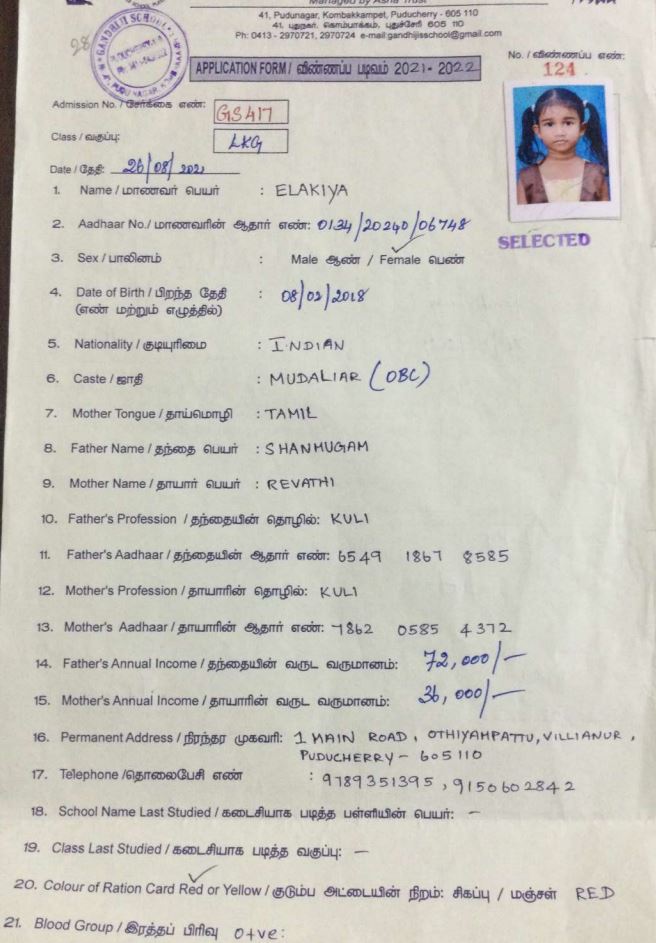 Managed by Asha Trust
41, Pudunagar, Kombakkampet, Puducherry - 605 110
41, புதுநகர், கொம்பாக்கம், புதுச்சேரி 605 110
Ph: 0413 - 2970721, 2970724 e-mail:gandhijisschool@gmail.com
28
GANDHIJI SCHOOL
No. / விண்ணப்ப எண்:
APPLICATION FORM / விண்ணப்ப படிவம் 2021 - 2022
124
Admission No. / சேர்க்கை எண்: GS417
Class / வகுப்பு: LKG
Date / தேதி: 26/08/2021
1. Name / மாணவர் பெயர் : ELAKIYA
2. Aadhaar No./ மாணவரின் ஆதார் எண்: 0134/20240/06748
SELECTED
3. Sex / பாலினம் : Male ஆண் / Female பெண்
4. Date of Birth / பிறந்த தேதி : 08/02/2018
(எண் மற்றும் எழுத்தில்)
5. Nationality / குடியுரிமை : INDIAN
6. Caste / ஜாதி : MUDALIAR (OBC)
7. Mother Tongue / தாய்மொழி : TAMIL
8. Father Name / தந்தை பெயர் : SHANMUGAM
9. Mother Name / தாயார் பெயர் : REVATHI
10. Father's Profession / தந்தையின் தொழில்: KULI
11. Father's Aadhaar / தந்தையின் ஆதார் எண்: 6549 1867 8585
12. Mother's Profession / தாயாரின் தொழில்: KULI
13. Mother's Aadhaar / தாயாரின் ஆதார் எண்: 7862 0585 4372
14. Father's Annual Income / தந்தையின் வருட வருமானம்: 72,000/-
15. Mother's Annual Income / தாயாரின் வருட வருமானம்: 36,000/-
16. Permanent Address / நிரந்தர முகவரி: 1 MAIN ROAD, OTHIYAMPATTU, VILLIANUR,
PUDUCHERRY - 605110
17. Telephone /தொலைபேசி எண் : 9789351395, 9150602842
18. School Name Last Studied / கடைசியாக படித்த பள்ளியின் பெயர்: -
19. Class Last Studied / கடைசியாக படித்த வகுப்பு: -
20. Colour of Ration Card Red or Yellow / குடும்ப அட்டையின் நிறம்: சிகப்பு / மஞ்சள் RED
21. Blood Group / இரத்தப் பிரிவு O+ve: